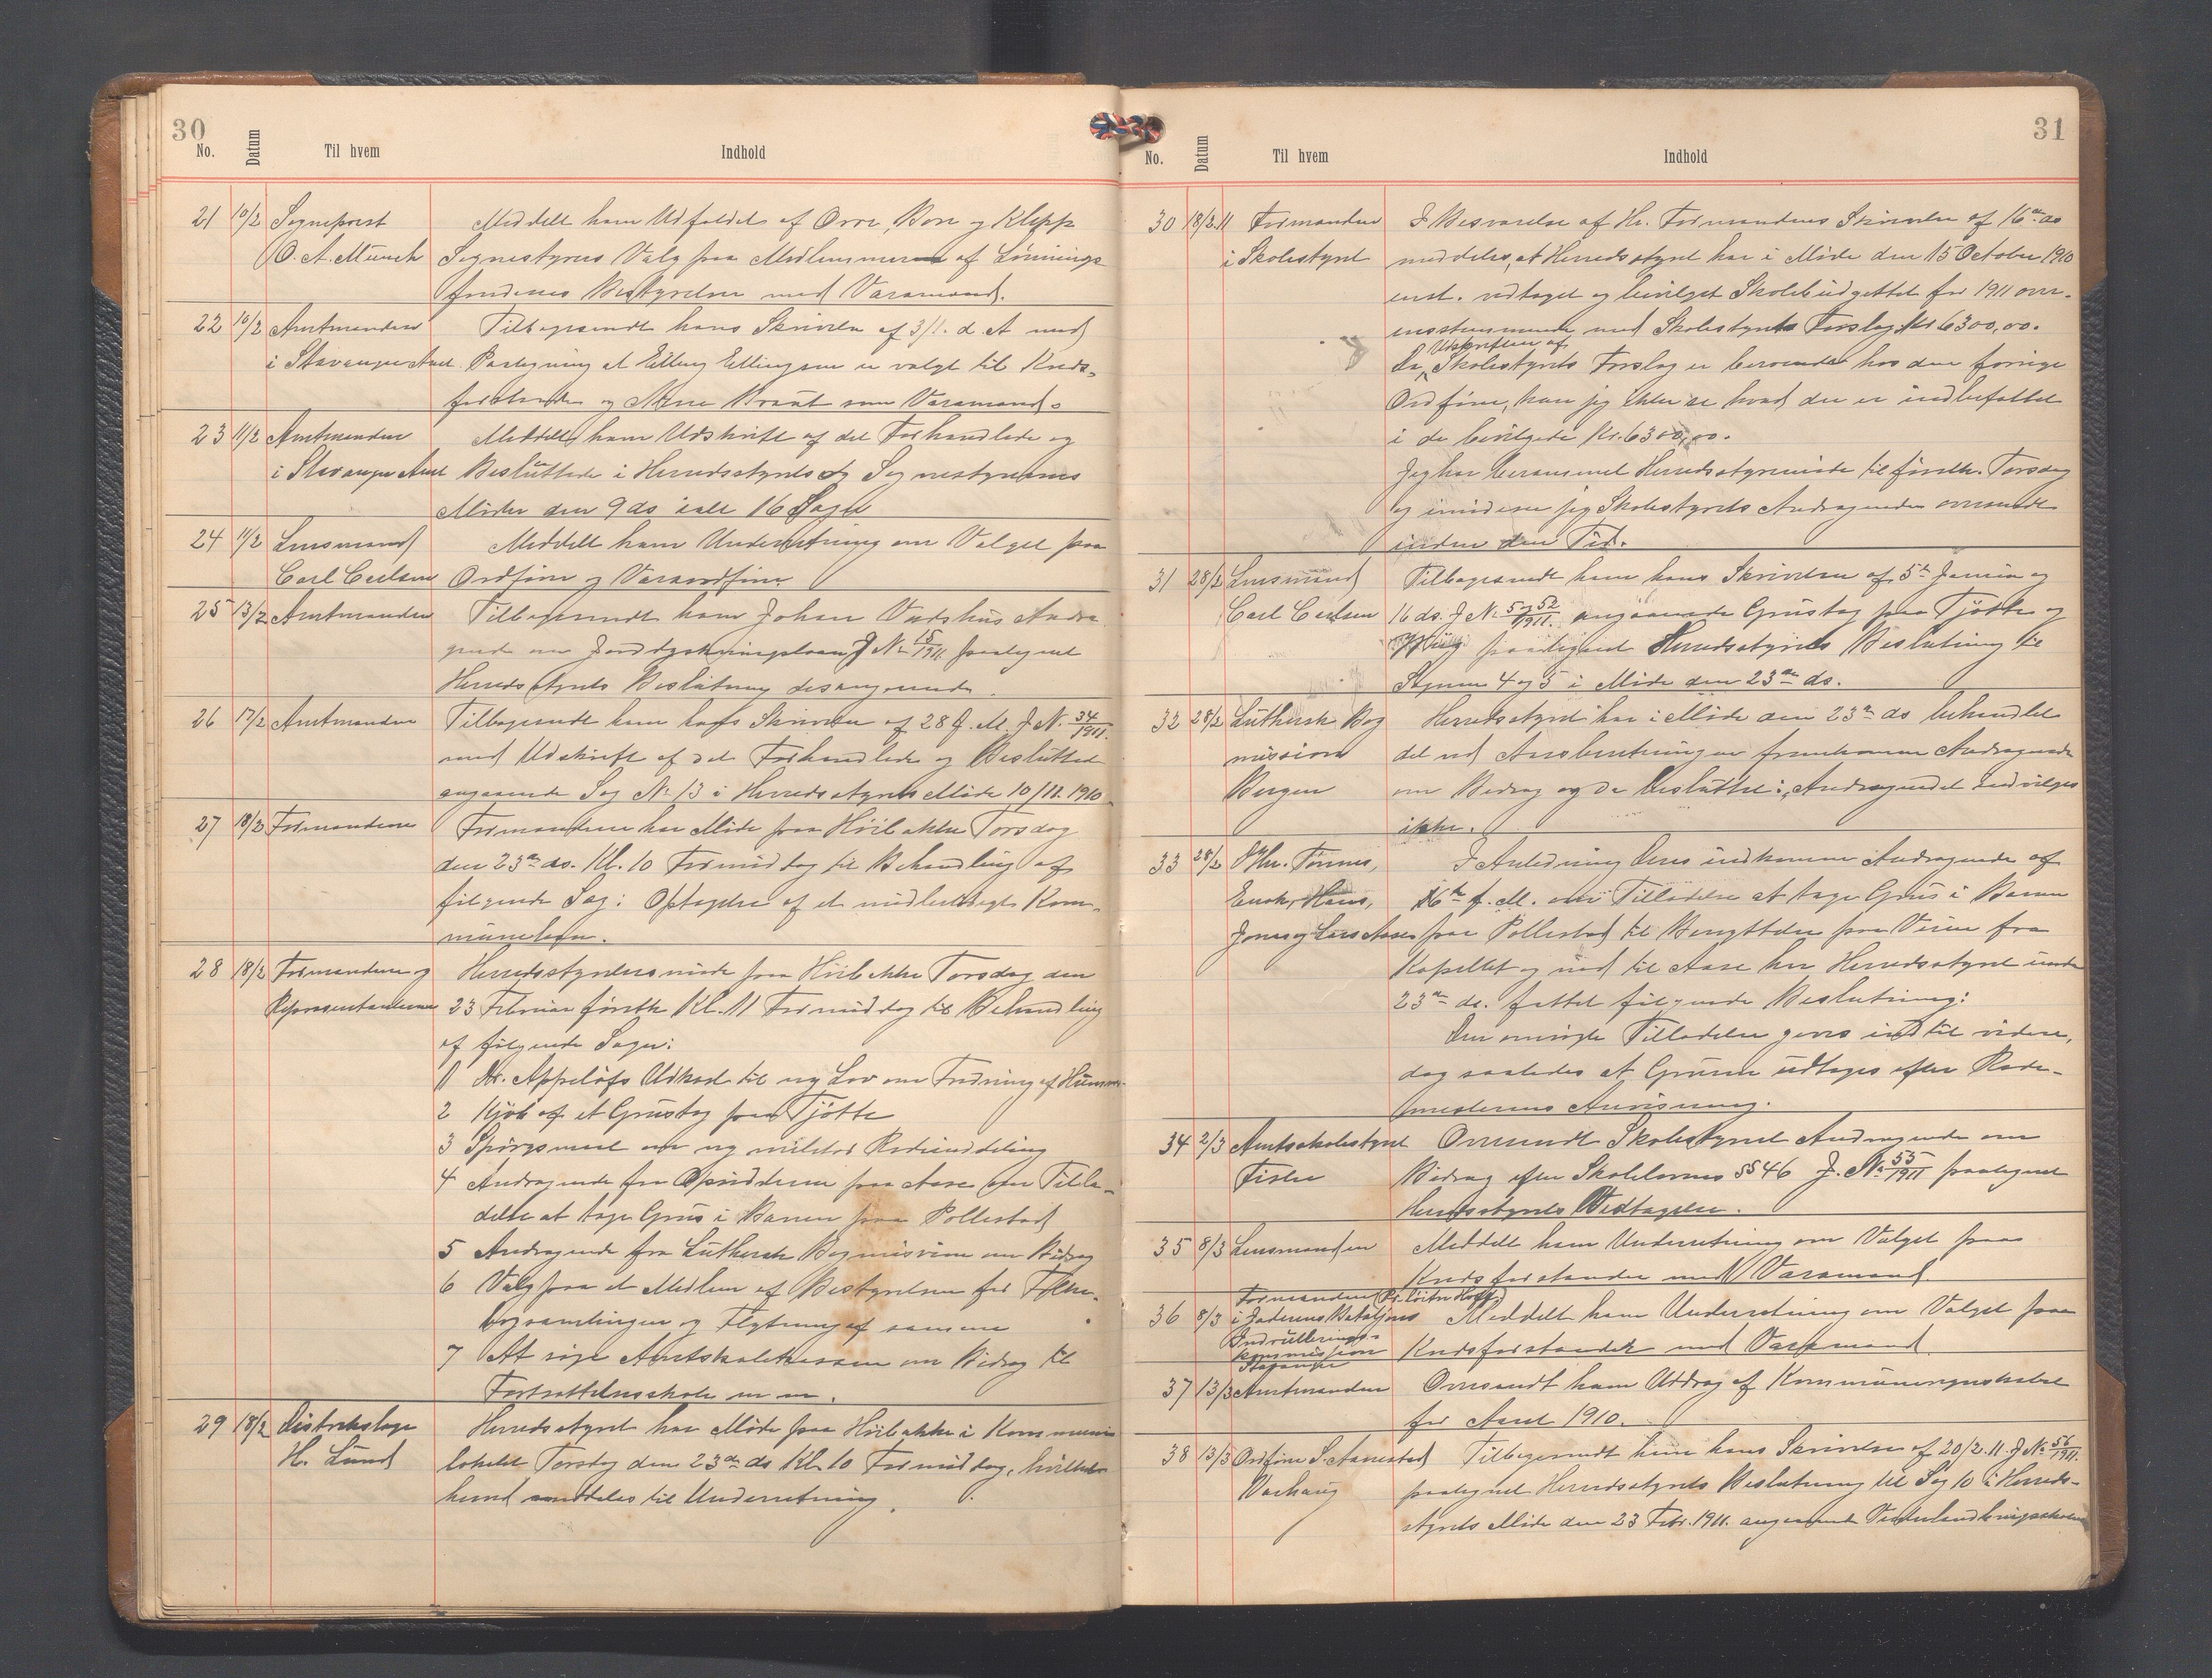 30
No. Datum Til hvem Indhold
21 10/2 Sogneprest Meddelt ham Udfaldet af Orre, Bore og Klepp
O. A. Münch Sognestyres Valg paa Medlemmerne af Lønnings
fondenes Bestyrelse med Varamænd.
22 10/2 Amtmanden Tilbagesendt hans Skrivelse af 3/1. d. A med
i Stavanger Amt Paategning at Elling Ellingsen er valgt til Kreds-
forstander og Arne Braut som Varamand.
23 11/2 Amtmanden Meddelt ham Udskrift af det Forhandlede og
i Stavanger Amt Besluttede i Herredsstyrets og Sognestyrenes
Møder den 9 ds ialt 16 Sager
24 11/2 Lensmand Meddelt ham Underretning om Valget paa
Carl Ceelsen Ordfører og Varaordfører
25 13/2 Amtmanden Tilbagesendt ham Johan Vadshus Andra
gende om Jorddyrkningslaan J Nr 15/1911. paategnet
Herredsstyrets Beslutning desangaaende.
26 17/2 Amtmanden Tilbagesendt ham hans Skrivelse af 28 f. M. J Nr. 34/1911.
med Udskrift af det Forhandlede og Besluttede
angaaende Sag Nr 13 i Herredsstyrets Møde 10/11. 1910.
27 18/2 Formændene Formændene har Møde paa Hvilebakke Torsdag
den 23de ds. Kl. 10 Formiddag til Behandling af
følgende Sag: Optagelse af et midlertidigt Kom-
munelaan.
28 18/2 Formændene og Herredsstyrelsesmøde paa Hvilebakke Torsdag den
Repræsentanterne 23 Februar førstk Kl. 11 Formiddag til Behandling
af følgende Sager:
1 Dr. Appeløfs Udkast til ny Lov om Fredning af Hummer
2 Kjøb af et Grustag paa Tjøtte
3 Spørgsmaal om ny militær Rodeinddeling
4 Andragende fra Opsidderne paa Aase om Tilla-
delse at tage Grus i Banen paa Pollestad
5 Andragende fra Luthersk Bogmission om Bidrag
6 Valg paa et Medlem af Bestyrelsen for Folke-
bogsamlingen og Flytning af samme
7 At søge Amtsskolekassen om Bidrag til
Fortsættelsesskole m m.
29 18/2 Distriktslæge Herredsstyret har Møde paa Hvilebakke i Kommune
H. Lund lokalet Torsdag den 23de ds Kl. 10 Formiddag, hvilket
herved meddeles til Underretning.
31
No. Datum Til hvem Indhold
30 18/2.11 Formanden I Besvarelse af Hr. Formandens Skrivelse af 16de ds
i Skolestyret meddeles, at Herredsstyret har i Møde den 15 October 1910
enst. vedtaget og bevilget Skolebudgettet for 1911 over-
ensstemmende med Skolestyrets Forslag Kr 6300,00.
Udskriften af
Da Skolestyrets Forslag er beroende hos den forrige
Ordfører, kan jeg ikke se hvad der er indbefattet
i de bevilgede Kr. 6300,00.
Jeg har berammet Herredsstyremøde til førstk. Torsdag
og imødeser jeg Skolestyrets Andragender oversendt
inden den Tid.
31 28/2 Lensmand Tilbagesendt ham hans Skrivelse af 5te Januar og
Carl Ceelsen 16 ds. J Nr. 5 og 52/1911. angaaende Grustag paa Tjøtte og
paategnet Herredsstyrets Beslutning til
Sagerne 4 og 5 i Møde den 23de ds.
32 28/2 Luthersk Bog Herredsstyret har i Møde den 23de ds behandlet
mission det ved Aarsberetningen fremkomne Andragende
Bergen om Bidrag og da besluttet: Andragendet indvilges
ikke.
33 28/2 Hr. Tønnes, I Anledning Deres indkomne Andragende af
Enok, Hans, 16de f. M. om Tilladelse at tage Grus i Banen
Jonas og Lars Aase paa Pollestad til Benyttelse paa Veien fra
Kapellet og ned til Aase har Herredsstyret under
23de ds. fattet følgende Beslutning:
Den omsøgte Tilladelse gives indtil videre,
dog saaledes at Grusen udtages efter Rode-
mesterens Anvisning.
34 2/3 Amtsskolestyret Oversendt Skolestyret Andragende om
Bidrag efter Skolelovens §§ 46 J. Nr. 55/1911 paategnet
Herredsstyrets Vedtagelse.
35 8/3 Lensmanden Meddelt ham Underretning om Valget paa
Kredsforstander med Varamand.
36 8/3 Formanden
i Jæderens Bataljons Meddelt ham Underretning om Valget paa
Indrullerings-
kommission Kredsforstander med Varamand.
Stavanger
37 13/3 Amtmanden Oversendt ham Uddrag af Kommuneregnskabet
for Aaret 1910.
38 13/3 Ordfører S. Aanestad Tilbagesendt ham hans Skrivelse af 20/2. 11. J Nr. 56/1911.
Varhaug paategnet Herredsstyrets Beslutning til Sag 10 i Herreds-
styrets Møde den 23 Febr. 1911. angaaende